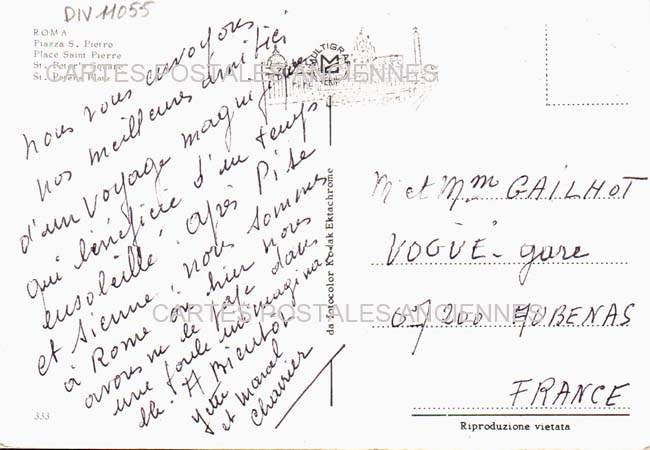 DIV 11055
ROMA
Piazza S. Pietro
Place Saint Pierre
St. Peter's Square
St. Peters Platz
CARTES POSTALES ANCIENNES
MULTIGRAF
nous vous envoyons
nos meilleures amitiés
d'un voyage magnifique
qui bénéficie d'un temps
ensoleillé. après Pise
et Sienne, nous sommes
à Rome où hier nous
avons vu le Pape dans
une foule inimagina
ble. A Bientôt
et
Chevrier
da fotocolor Kodak Ektachrome
M et Mme GAILHOT
VOGÜE - gare
07200 AUBENAS
FRANCE
CARTES POSTALES ANCIENNES
333
Riproduzione vietata